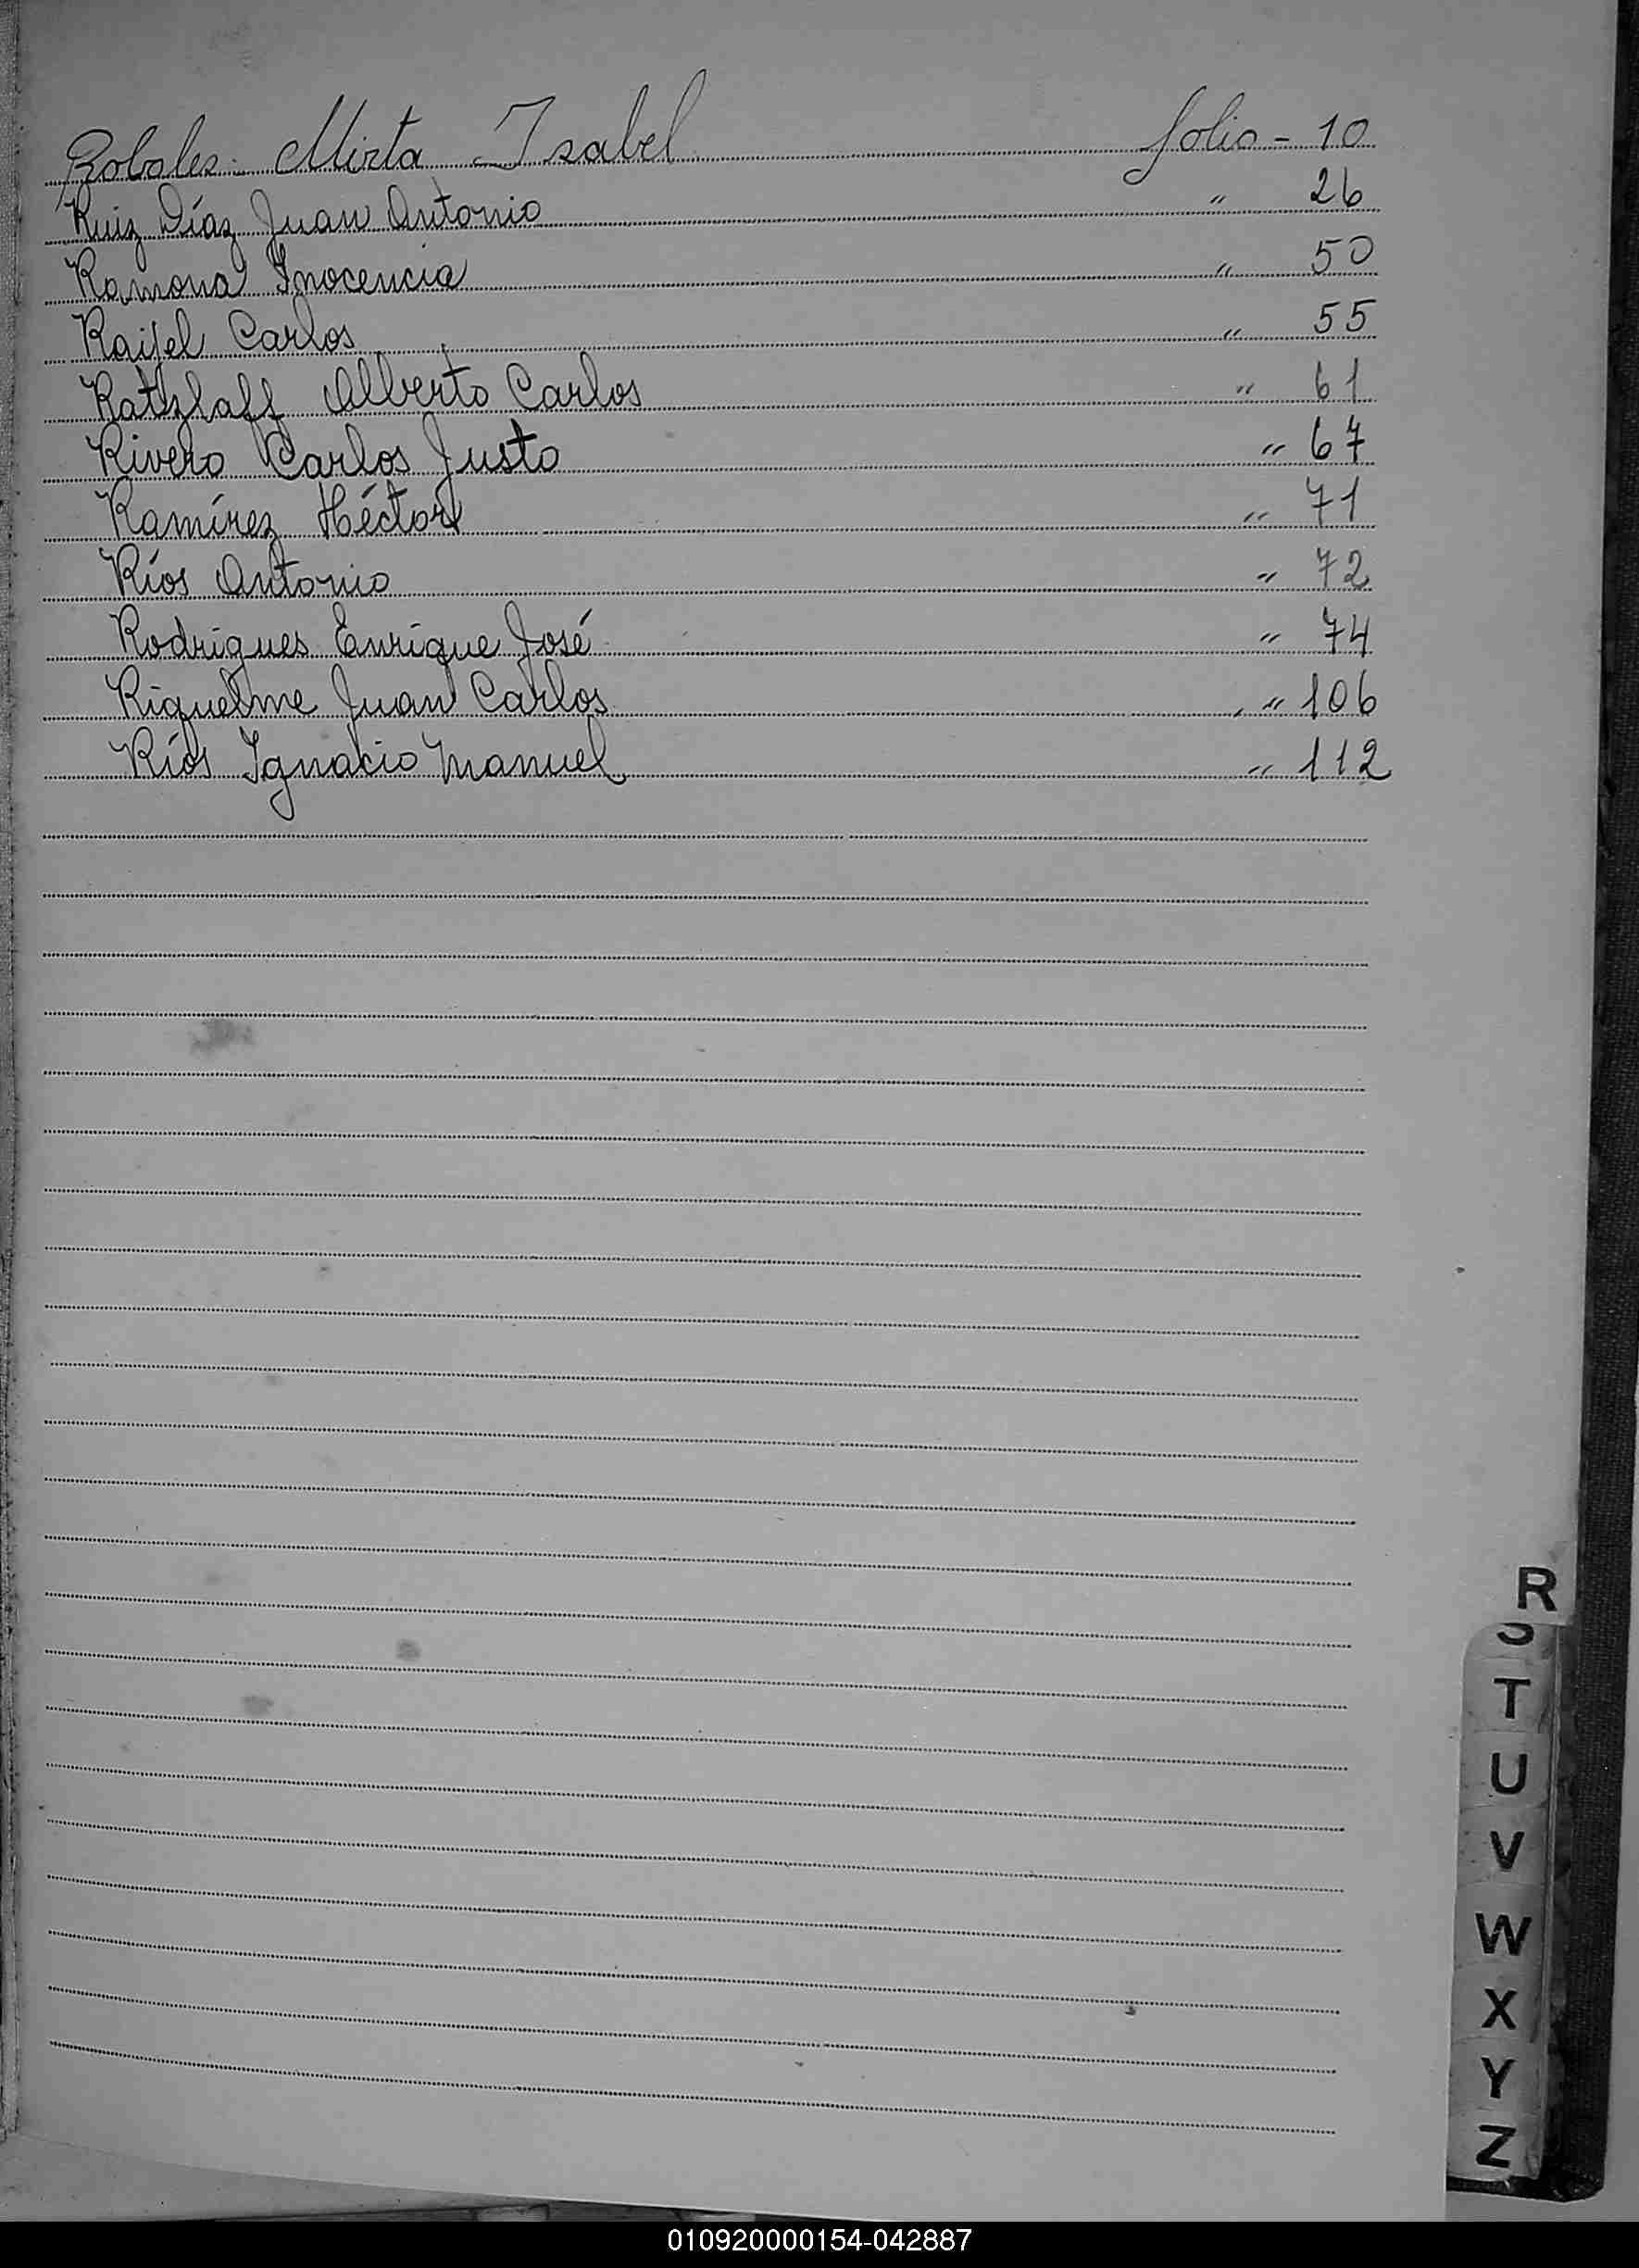 Robales Mirta Isabel folio - 10
Ruiz Díaz Juan Antonio " 26
Ramona Inocencia " 50
Raifel Carlos " 55
Ratzlaff Alberto Carlos " 61
Rivero Carlos Justo " 67
Ramírez Héctor " 71
Ríos Antonio " 72
Rodrigues Enrique José " 74
Riquelme Juan Carlos " 106
Ríos Ignacio Manuel " 112
R
S
T
U
V
W
X
Y
Z
010920000154-042887